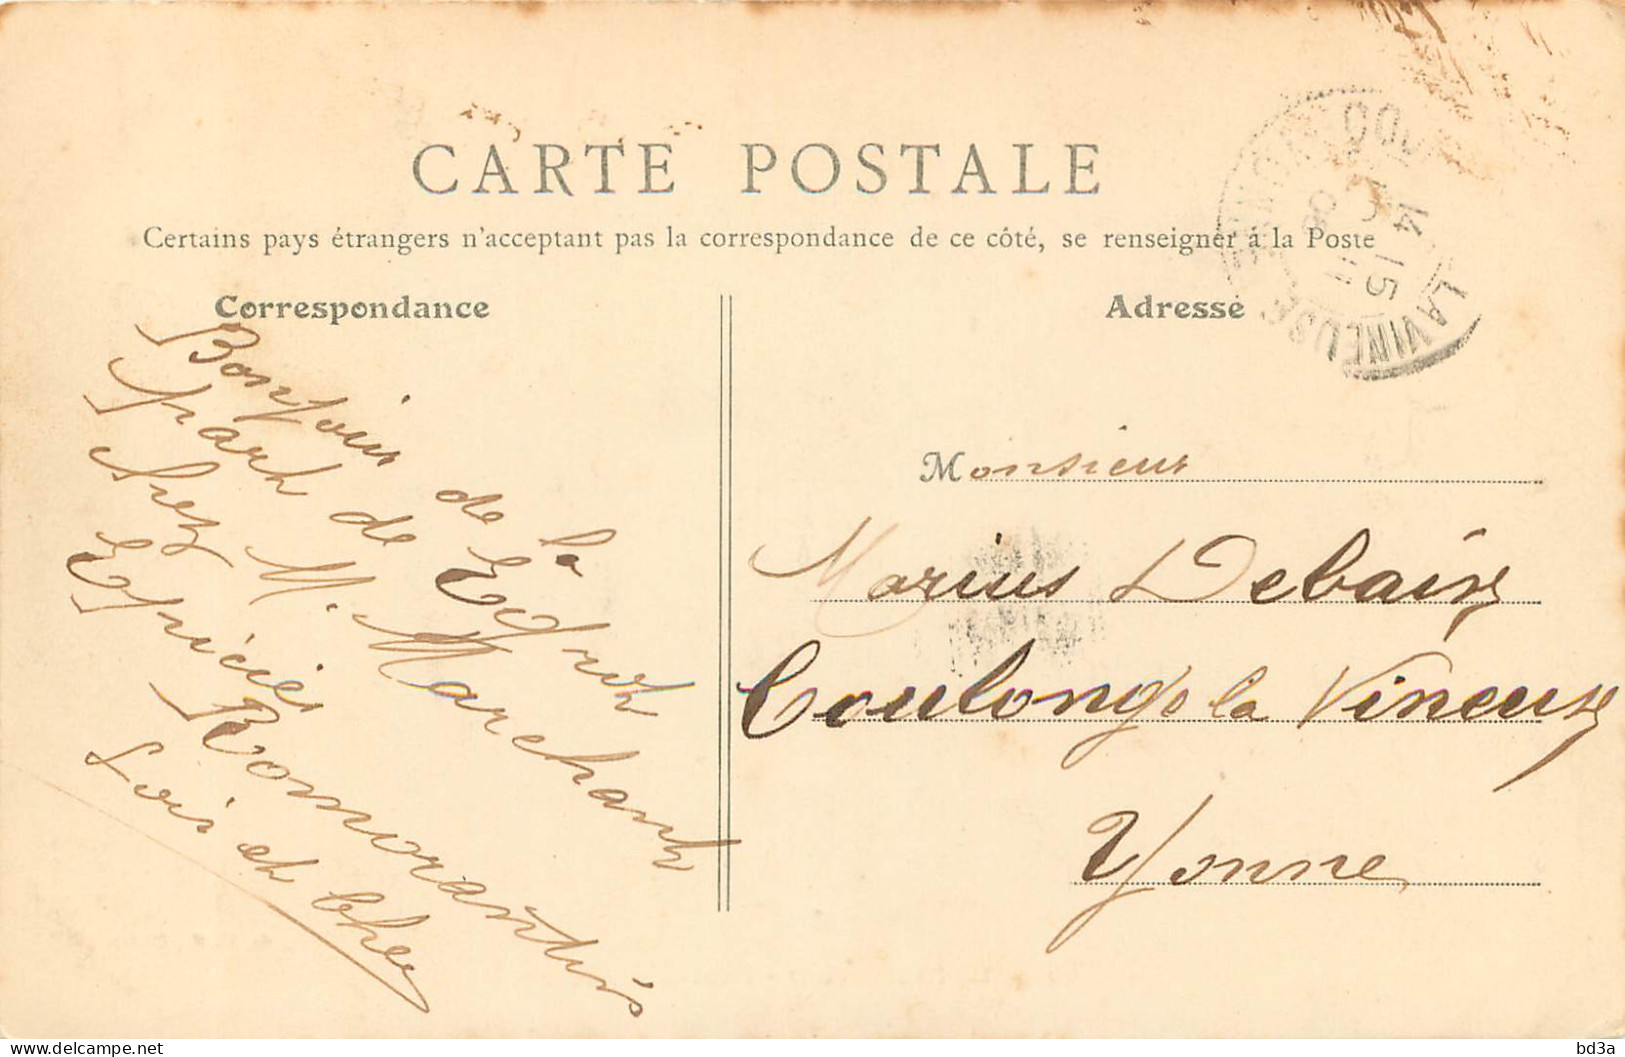 CARTE POSTALE
Certains pays étrangers n'acceptant pas la correspondance de ce côté, se renseigner à la Poste
Correspondance
Bonjour de la
part de
chez M. Marchant
Epicier
Romorantin
Loir et Cher
Adresse
Monsieur
Marius Debain
Coulonge la Vineuse
Yonne
14 15
LA VINEUSE
delcampe.net
bd3a